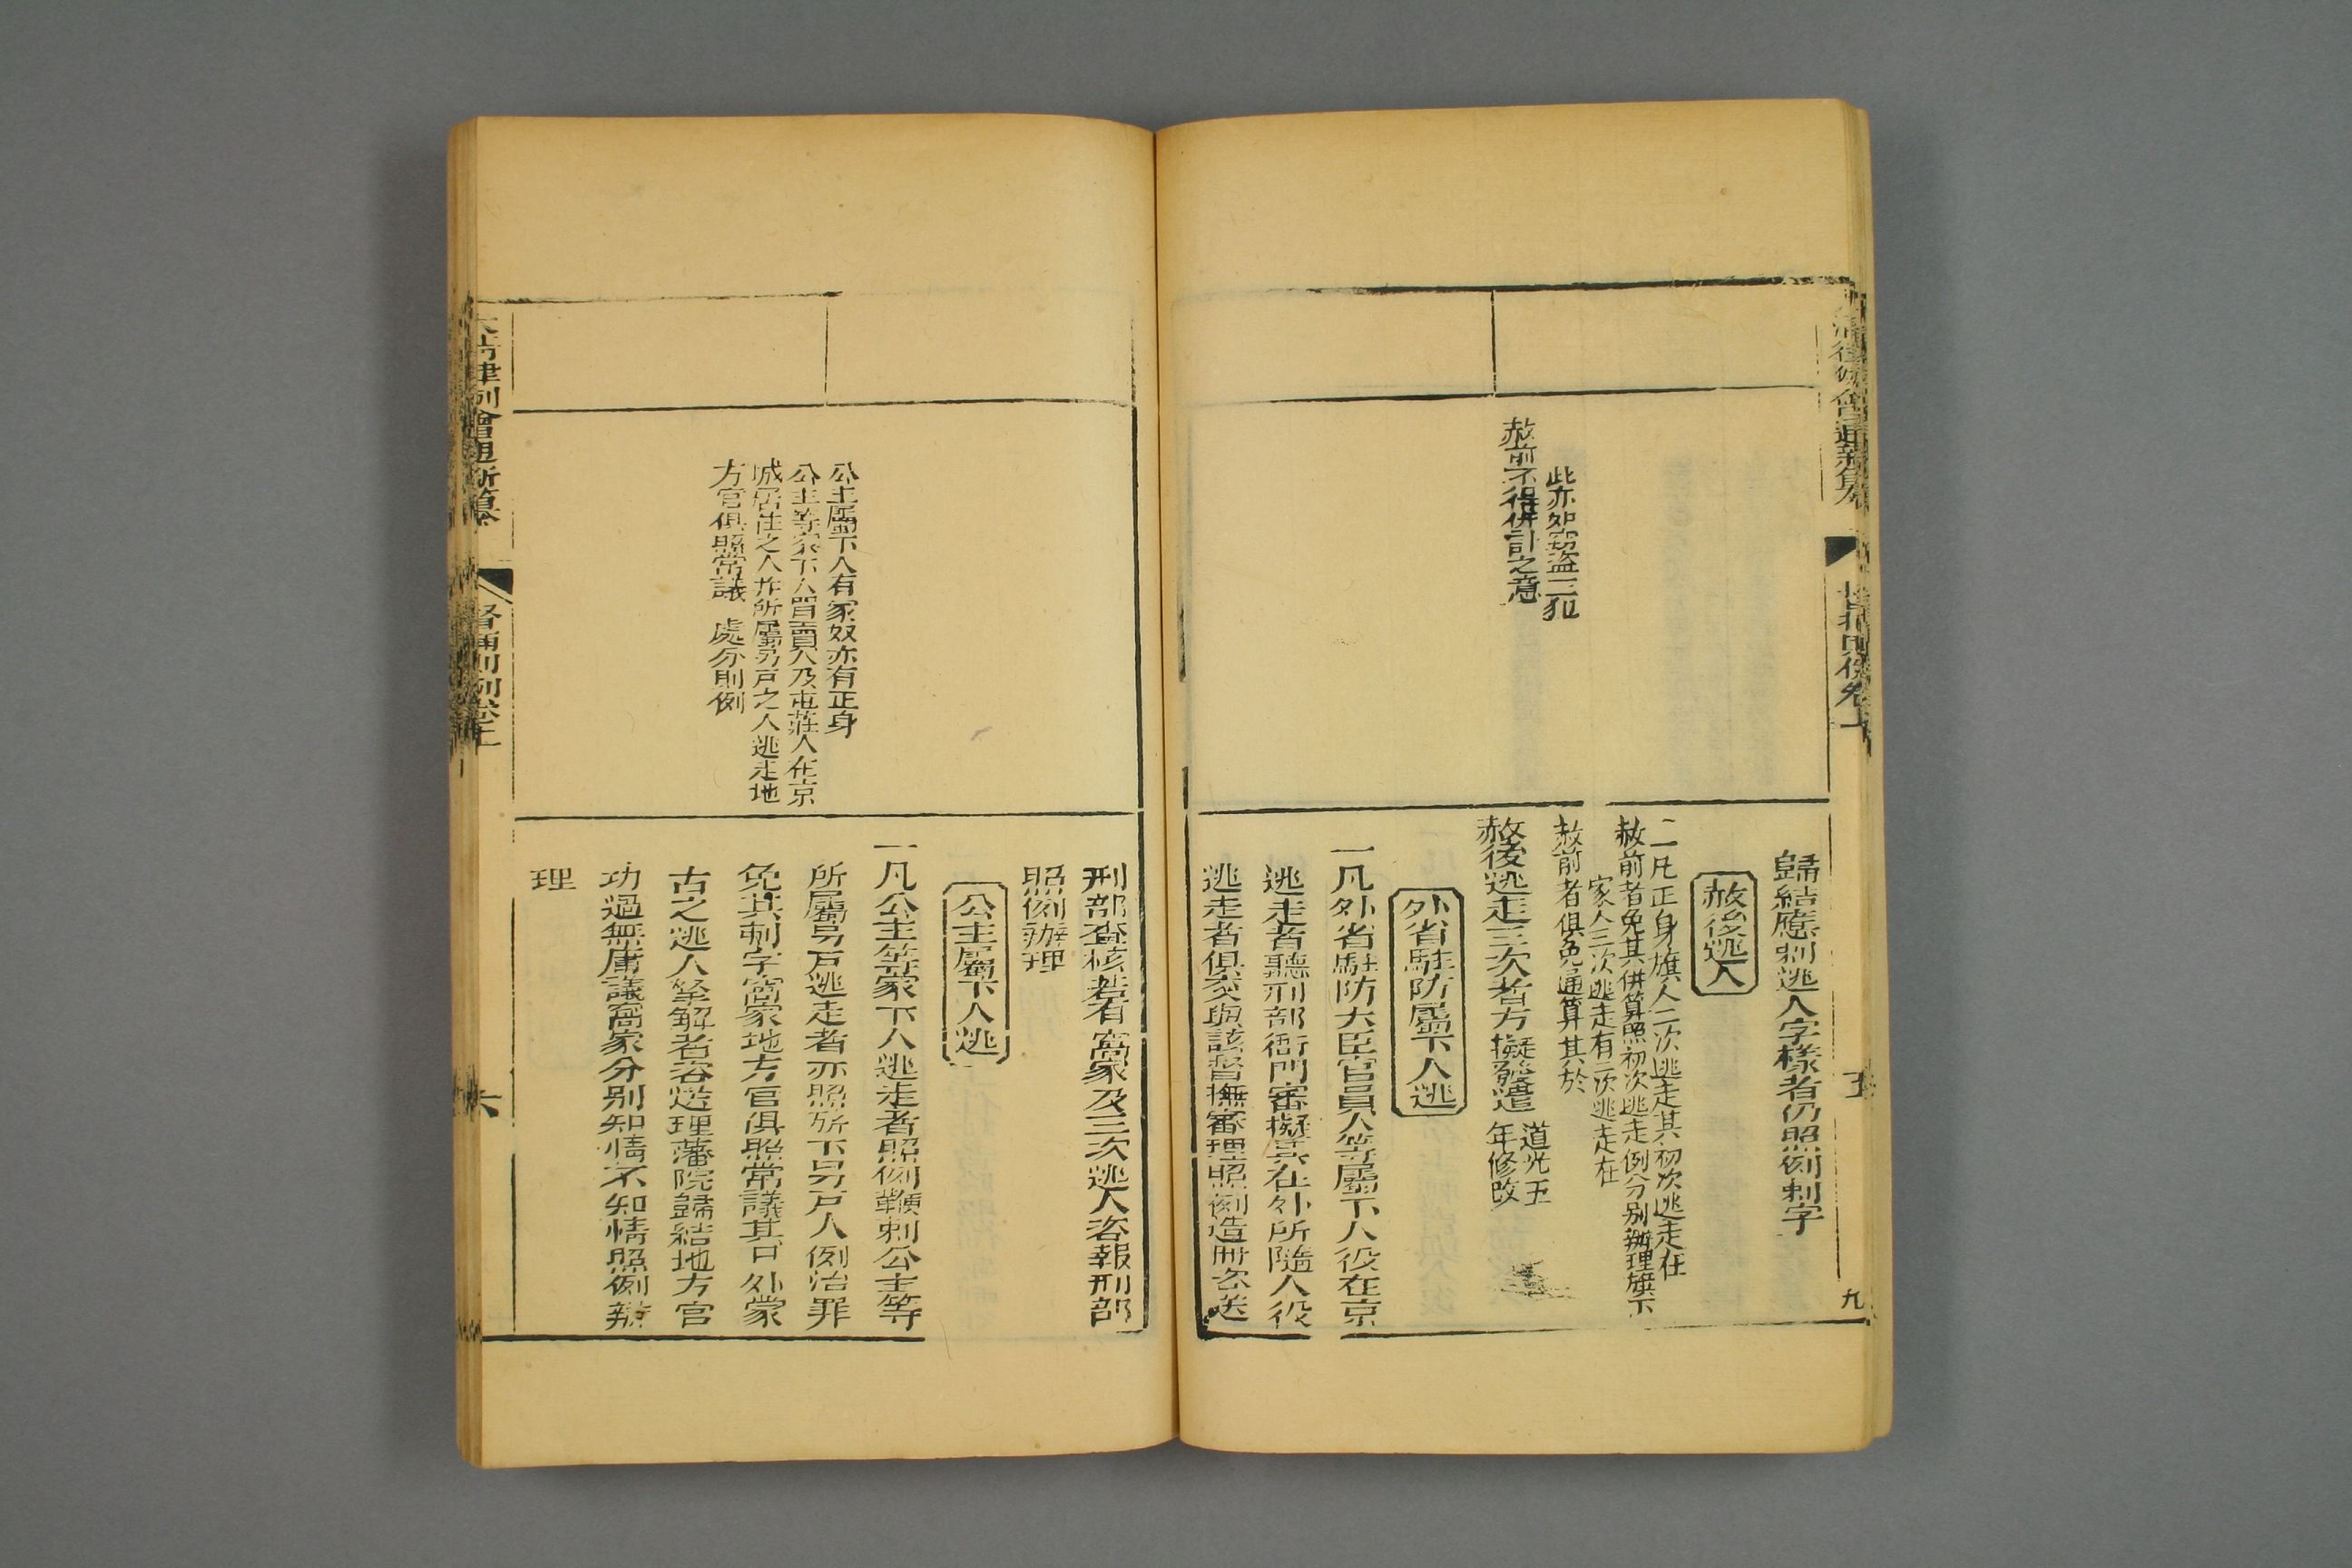 歸結應刺逃人字樣者仍照例刺字
赦後逃人
一凡正身旗人二次逃走其初次逃走在
赦前者免其併算照初次逃走例分别辦理旗下
家人三次逃走有二次逃走在
赦前者俱免通算其於
赦後逃走三次者方擬發遣
道光五
年修改
外省駐防屬下人逃
一凡外省駐防大臣官員人等屬下人役在京
逃走者聽刑部衙門審擬其在外所隨人役
逃走者俱交與該督撫審理照例造冊咨送
此亦如竊盜三犯
赦前不得併計之意
九
刑部查核若有窩家及三次逃人咨報刑部
照例辦理
公主屬下人逃
一凡公主等家下人逃走者照例鞭刺公主等
所屬另戸逃走者亦照旂下另戸人例治罪
免其刺字窩家地方官俱照常議其口外蒙
古之逃人拏解者咨送理藩院歸結地方官
功過無庸議窩家分别知情不知情照例辦
理
公主屬下人有家奴亦有正身
公主等家下人買賣人及屯莊人在京
城居住之人并所屬另戸之人逃走地
方官俱照常議 處分則例
大清律例會通新纂
督捕則例卷上
六